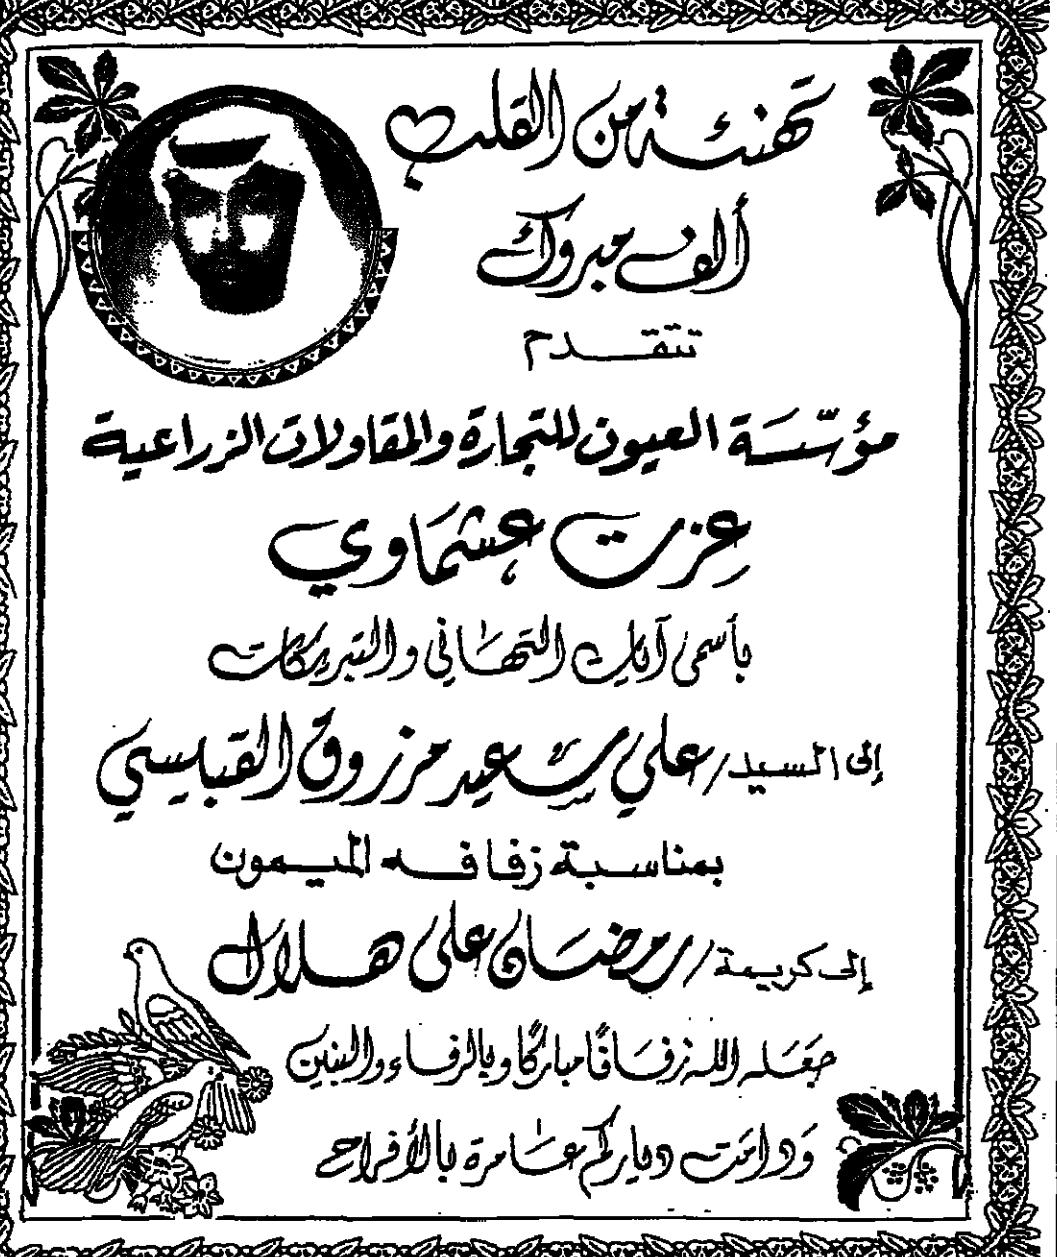 تهنئة من القلب
ألف مبروك
تتقدم
مؤسّسَة العيون للتجارة والمقاولات الزراعية
عزت عشماوي
بأسمى آيات التهاني والتبريكات
إلى السيد/ علي سعيد مرزوق القبيسي
بمناسبة زفافه الميمون
إلى كريمة/ رمضان على هلال
جَعَله الله زفَافًا مباركًا وبالرفاء والبنين
وَدامَت دياركم عَامرة بالأفراح